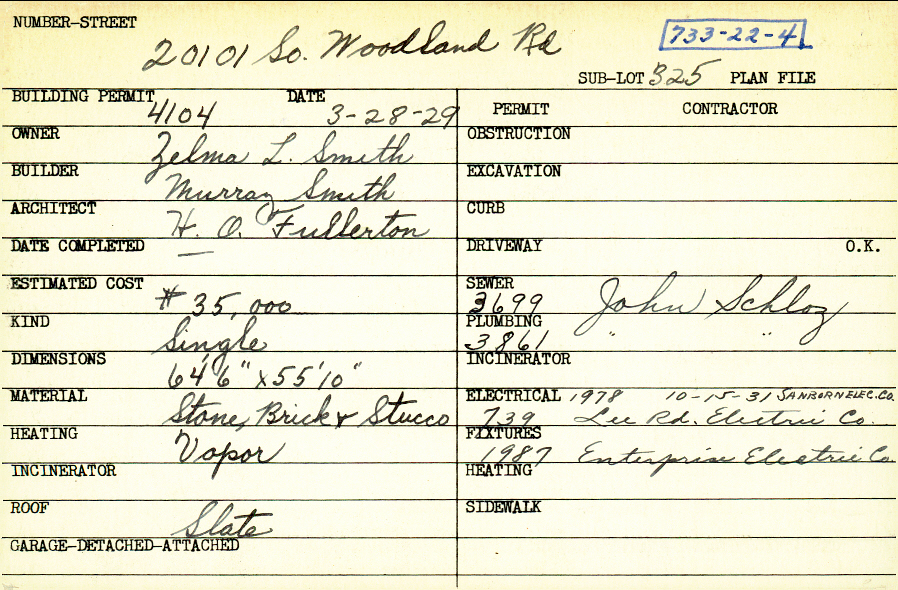 NUMBER-STREET
20101 So. Woodland Rd
733-22-4
SUB-LOT 325 PLAN FILE
BUILDING PERMIT 4104 DATE 3-28-29
PERMIT CONTRACTOR
OWNER Zelma L. Smith
OBSTRUCTION
BUILDER Murray Smith
EXCAVATION
ARCHITECT H. O. Fullerton
CURB
DATE COMPLETED —
DRIVEWAY O.K.
ESTIMATED COST # 35,000
SEWER 3699 John Schloz
KIND Single
PLUMBING 3861 " "
DIMENSIONS 64'6" x 55'10"
INCINERATOR
MATERIAL Stone, Brick & Stucco
ELECTRICAL 1978 10-15-31 SANBORN ELEC. CO.
739 Lee Rd. Electric Co.
HEATING Vapor
FIXTURES 1987 Enterprise Electric Co.
INCINERATOR
HEATING
ROOF Slate
SIDEWALK
GARAGE-DETACHED-ATTACHED